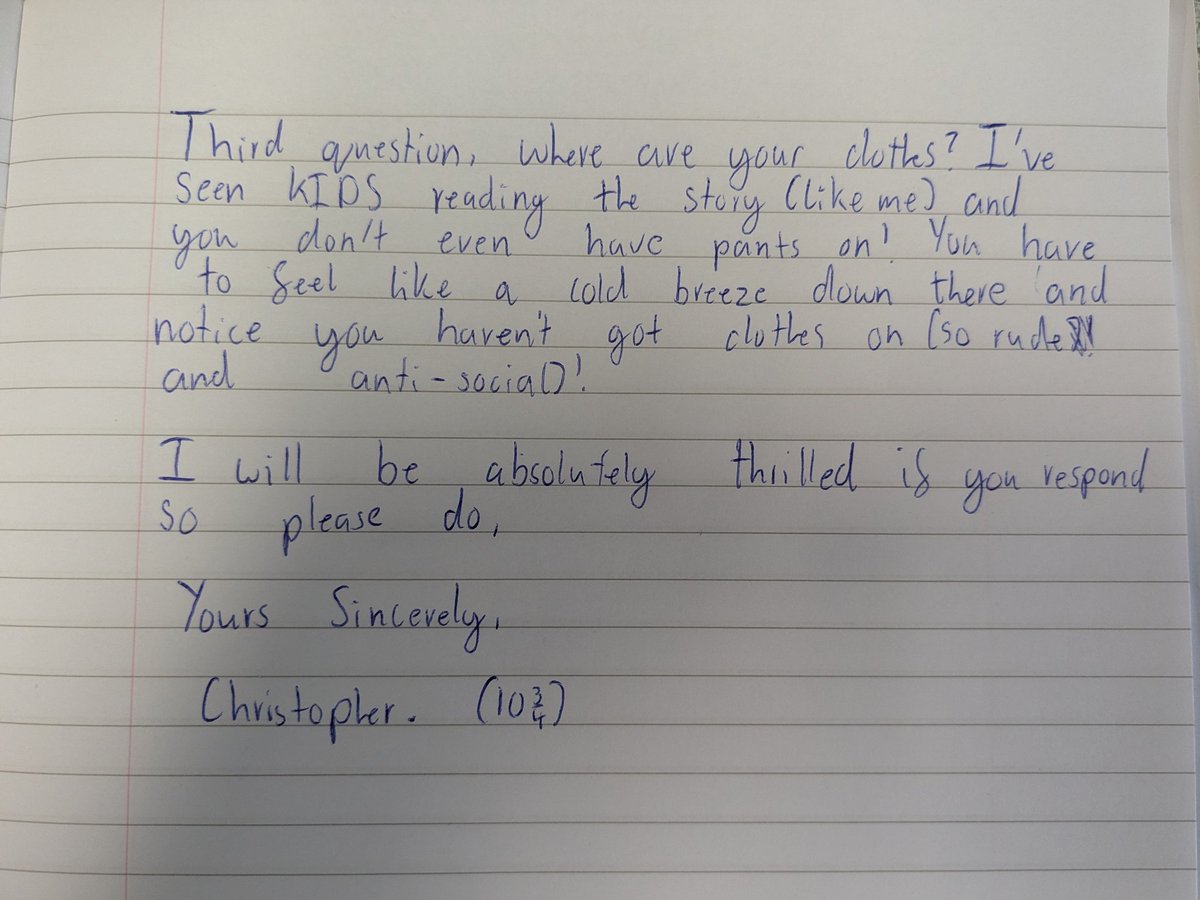 Third question, where are your clothes? I've
seen KIDS reading the story (like me) and
you don't even have pants on! You have
to feel like a cold breeze down there and
notice you haven't got clothes on (so rude
and anti-social)!
I will be absolutely thrilled if you respond
so please do,
Yours Sincerely,
Christopher. (10 3/4)